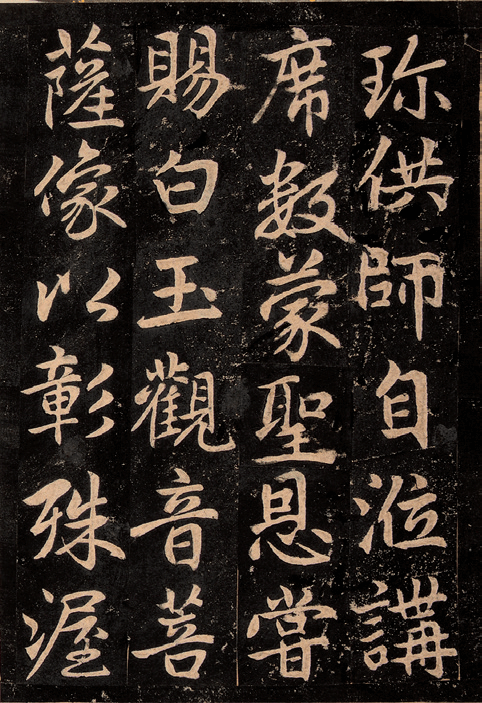 珎供師自涖講
席數蒙聖恩甞
賜白玉觀音菩
薩像以彰殊渥